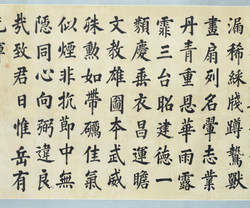 漏稀蹲鷙獸
畫扇列名翬志業
丹青重恩華雨露
霏三台昭建德一
類慶垂衣昌運瞻
文教雄圖本武威
殊勲如帶礪佳氣
似煙非抗節中無
隱同心向弼違良
哉致君日惟岳有